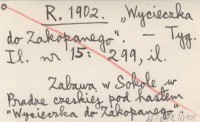 R. 1902. „Wycieczka
do Zakopanego". — Tyg.
Il. nr 15: 299, il.
Zabawa w Sokole w
Pradze czeskiej pod hasłem
"Wycieczka do Zakopanego"